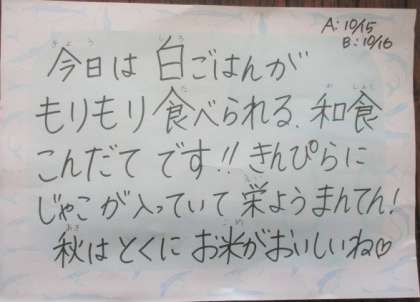 A:10/15
B:10/16
今日は白ごはんが
もりもり食べられる、和食
こんだてです!!きんぴらに
じゃこが入っていて栄ようまんてん!
秋はとくにお米がおいしいね♡